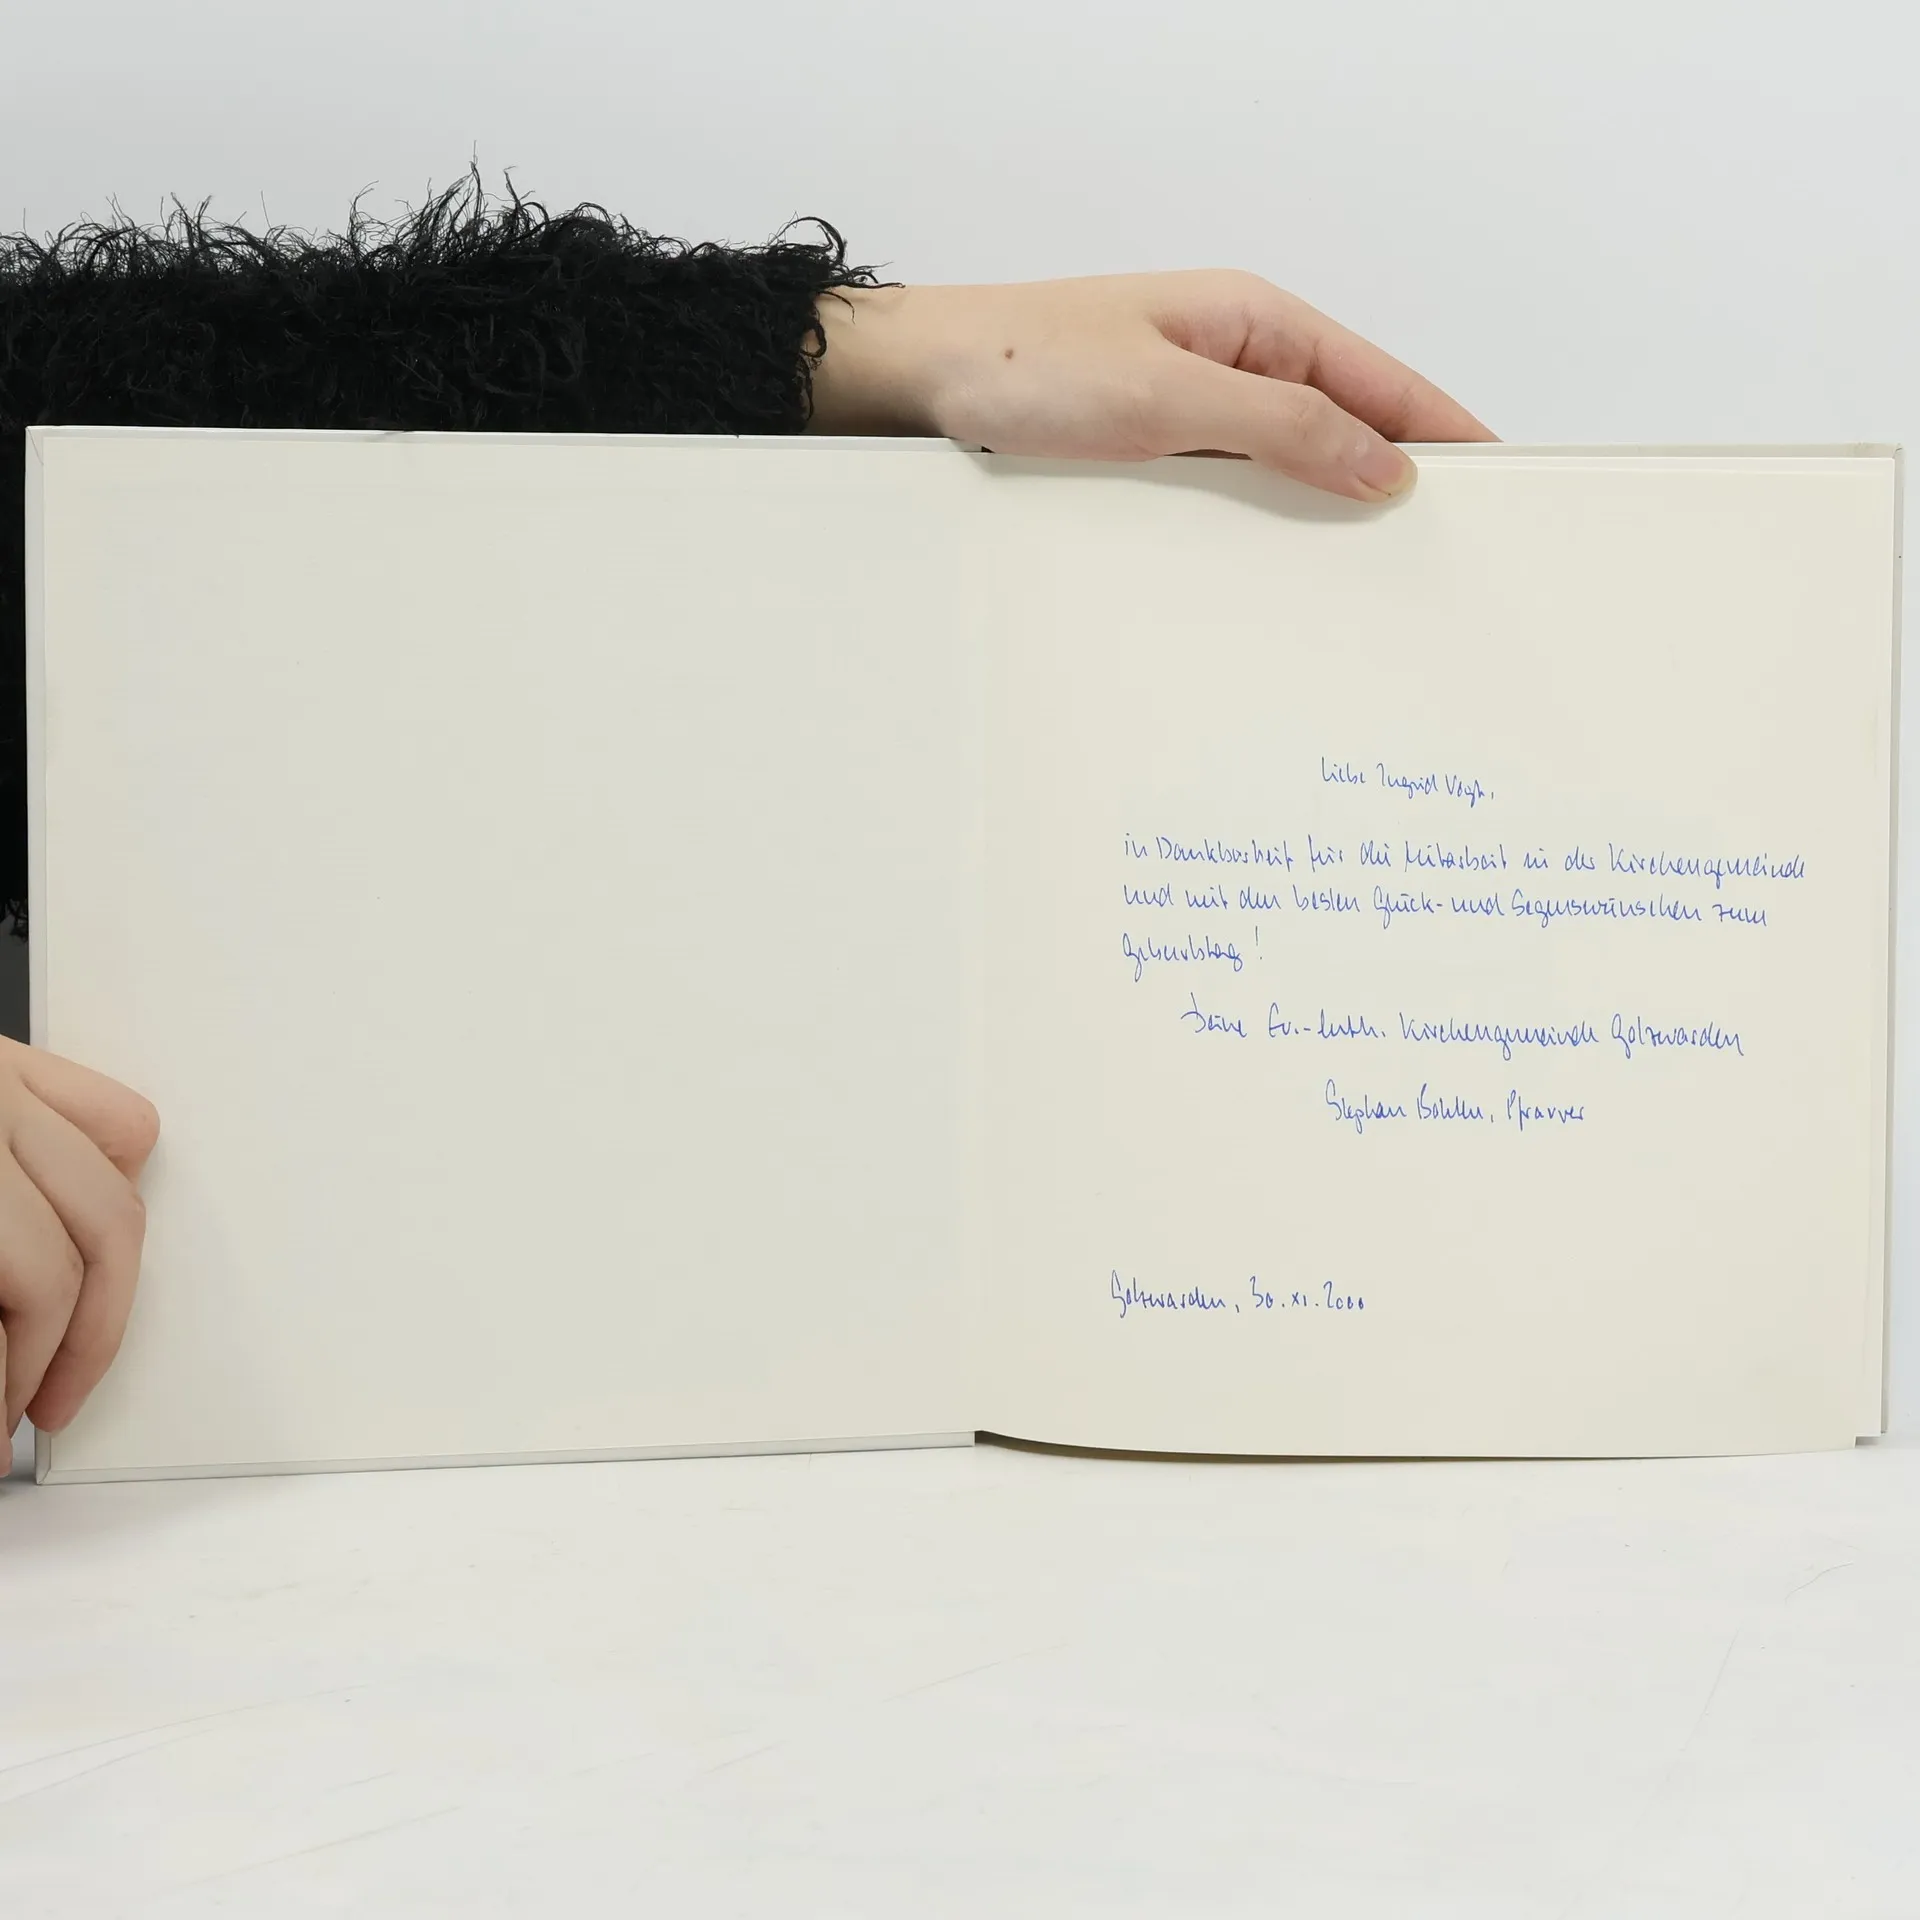 Liebe Ingrid Vogt,
in Dankbarkeit für die Mitarbeit in der Kirchengemeinde
und mit den besten Glück- und Segenswünschen zum
Geburtstag!
Deine Ev.-luth. Kirchengemeinde Golzwarden
Stephan Bohlen, Pfarrer
Golzwarden, 30.XI.2000